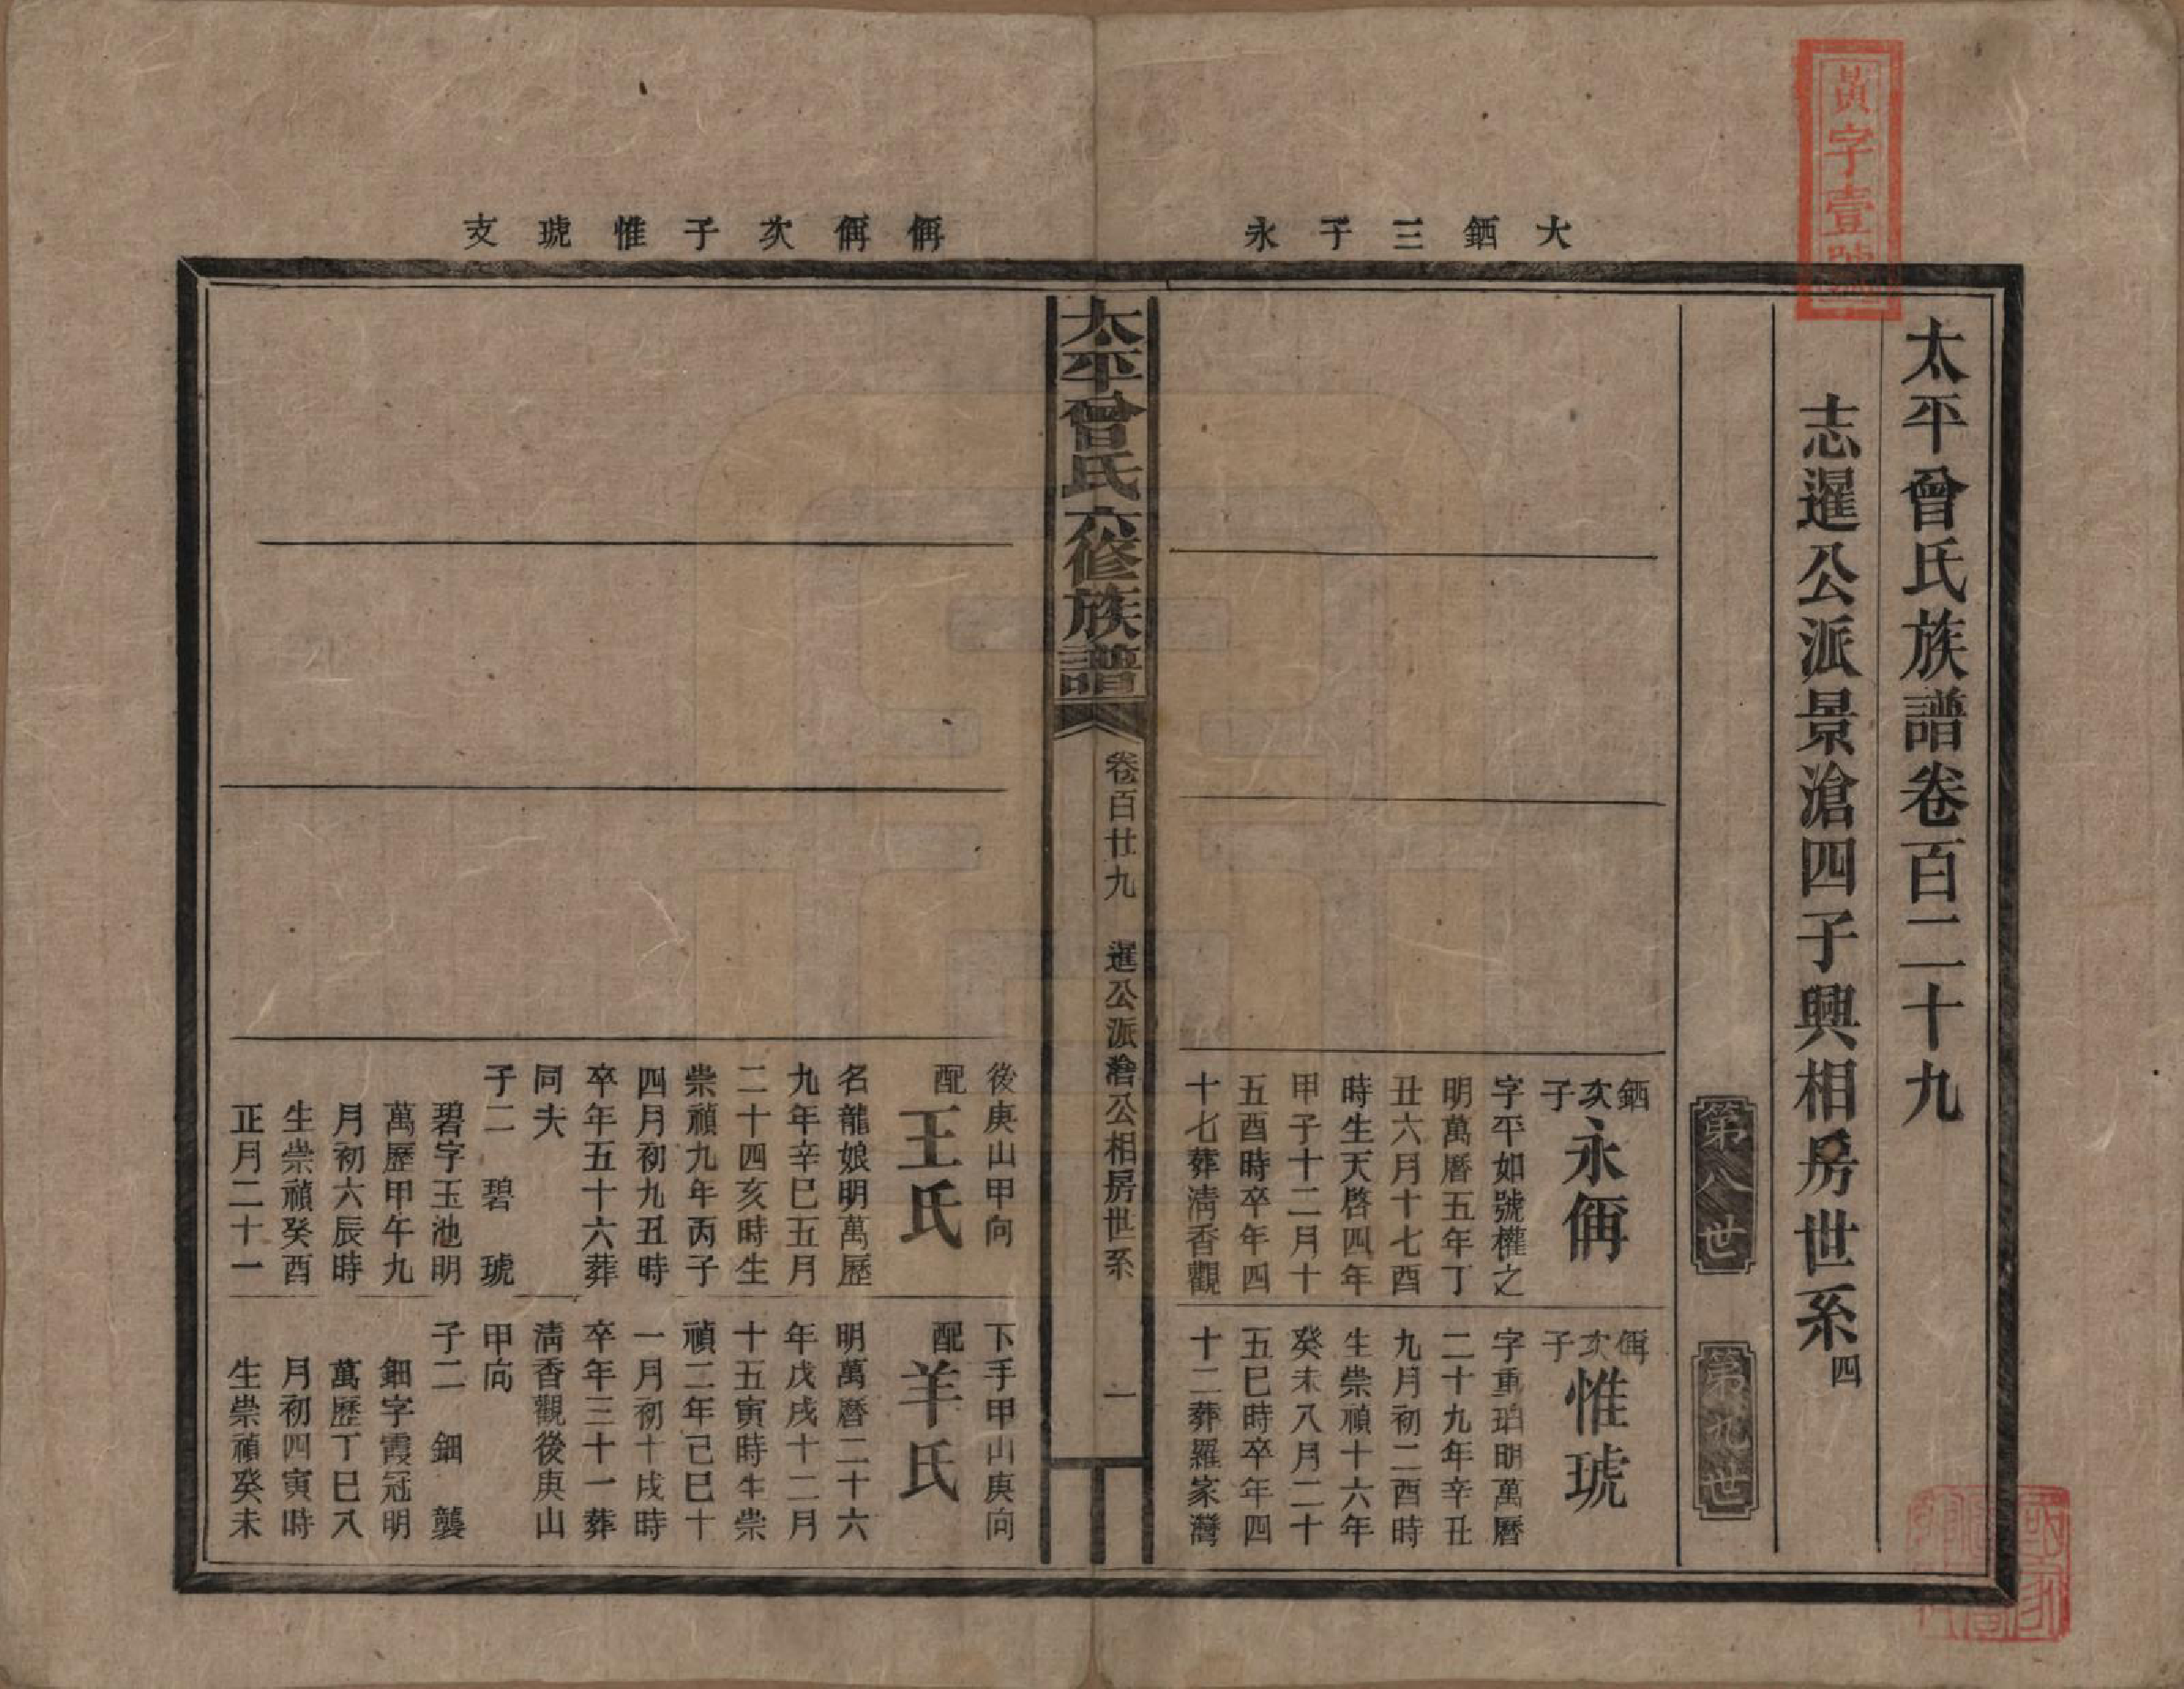 黃字壹號
大鉰三子永
偁偁次子惟琥支
太平曾氏族譜卷百二十九
志暹公派景滄四子興相房世系四
第八世
第九世
次子永偁
字平如號權之
明萬曆五年丁
丑六月十七酉
時生天啓四年
甲子十二月十
五酉時卒年四
十七葬清香觀
後庚山甲向
配王氏
名龍娘明萬歷
九年辛巳五月
二十四亥時生
崇禎九年丙子
四月初九丑時
卒年五十六葬
同夫
子二 碧 琥
碧字玉池明
萬歷甲午九
月初六辰時
生崇禎癸酉
正月二十一
偁次子惟琥
字重珀明萬曆
二十九年辛丑
九月初二酉時
生崇禎十六年
癸未八月二十
五巳時卒年四
十二葬羅家灣
下手甲山庚向
配羊氏
明萬曆二十六
年戊戌十二月
十五寅時生崇
禎二年己巳十
一月初十戌時
卒年三十一葬
清香觀後庚山
甲向
子二 鈿 襲
鈿字霞冠明
萬歷丁巳八
月初四寅時
生崇禎癸未
太平曾氏六修族譜
卷百廿九 暹公派滄公相房世系 一